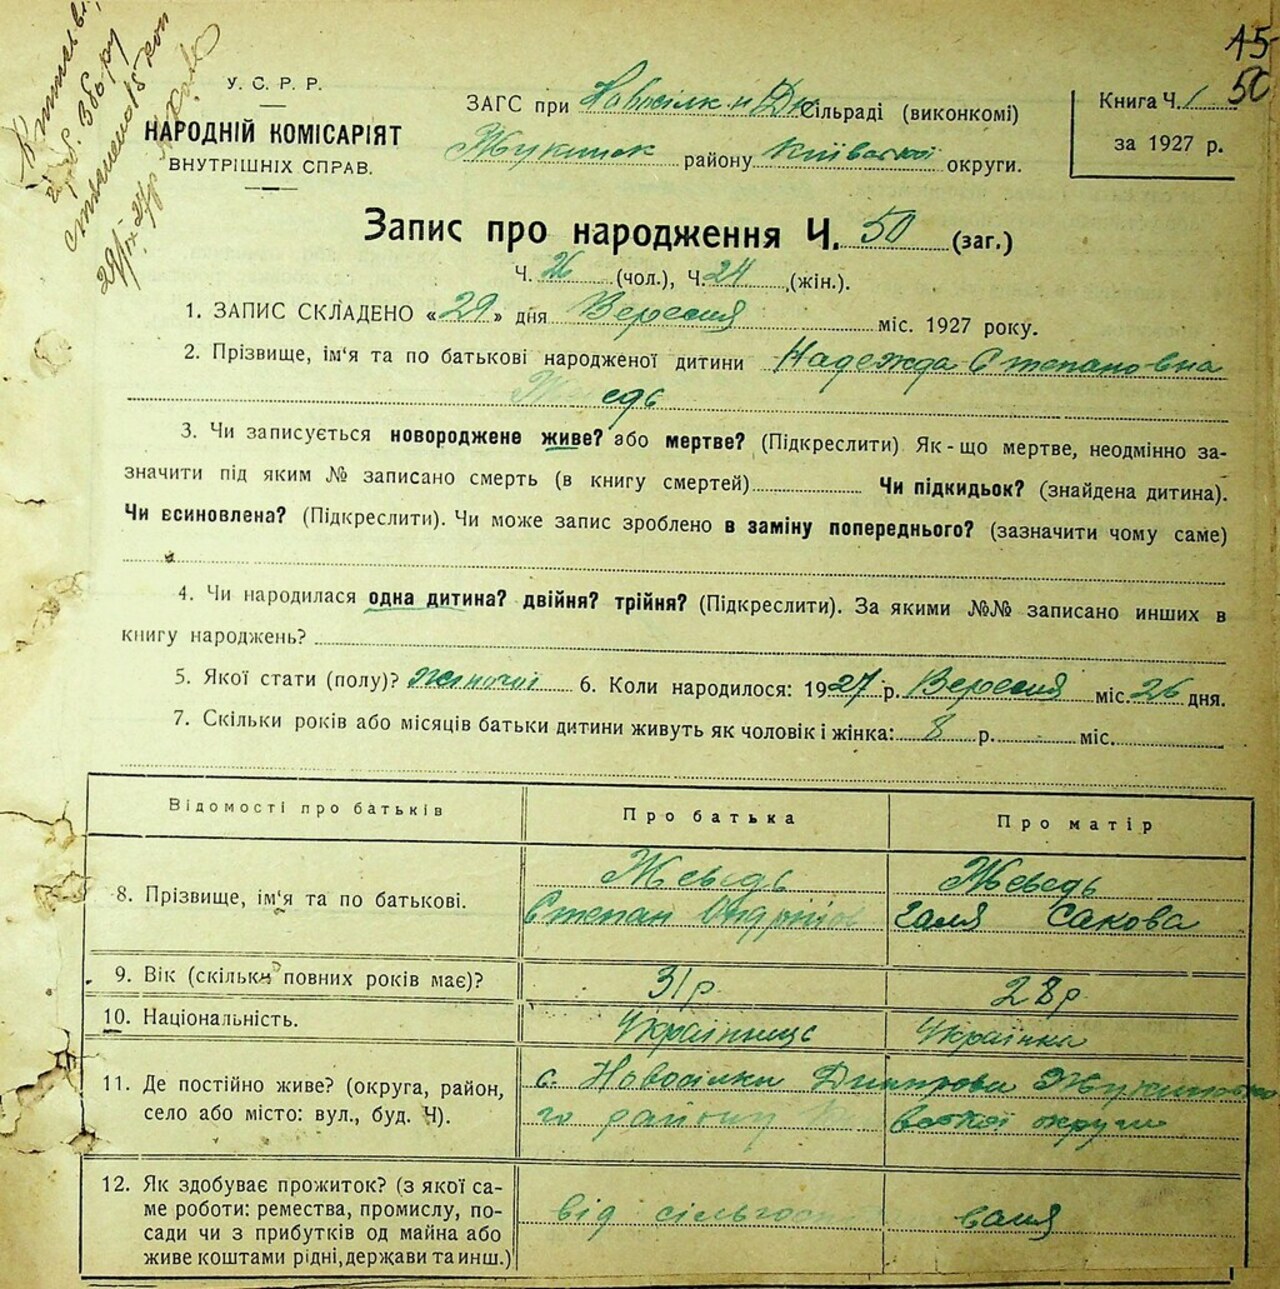 15
50
У. С. Р. Р.
НАРОДНІЙ КОМІСАРІЯТ
ВНУТРІШНІХ СПРАВ.
ЗАГС при Новосілки Дн Сільраді (виконкомі)
Жукинск району Київської округи.
Книга Ч. 1
за 1927 р.
Запис про народження Ч. 50 (заг.)
Ч. 26 (чол.), Ч. 24 (жін.).
1. ЗАПИС СКЛАДЕНО «29» дня Вересня міс. 1927 року.
2. Прізвище, ім'я та по батькові народженої дитини Надежда Степановна
Жеведь
3. Чи записується новороджене живе? або мертве? (Підкреслити) Як-що мертве, неодмінно за-
значити під яким № записано смерть (в книгу смертей) Чи підкидьок? (знайдена дитина).
Чи всиновлена? (Підкреслити). Чи може запис зроблено в заміну попереднього? (зазначити чому саме)
4. Чи народилася одна дитина? двійня? трійня? (Підкреслити). За якими №№ записано инших в
книгу народжень?
5. Якої стати (полу)? жіночої 6. Коли народилося: 1927 р. Вересня міс. 26 дня.
7. Скільки років або місяців батьки дитини живуть як чоловік і жінка: 8 р. - міс.
Відомості про батьків
Про батька
Про матір
8. Прізвище, ім'я та по батькові.
Жеведь
Степан Андрійов
Жеведь
Галя Сакова
9. Вік (скільки повних років має)?
31 р
28 р
10. Національність.
Українець
Українка
11. Де постійно живе? (округа, район,
село або місто: вул., буд. Ч).
с. Новосілки Дніпрови Жукинсько
го району вської округи
12. Як здобуває прожиток? (з якої са-
ме роботи: ремества, промислу, по-
сади чи з прибутків од майна або
живе коштами рідні, держави та инш.)
від сільгоспо вання